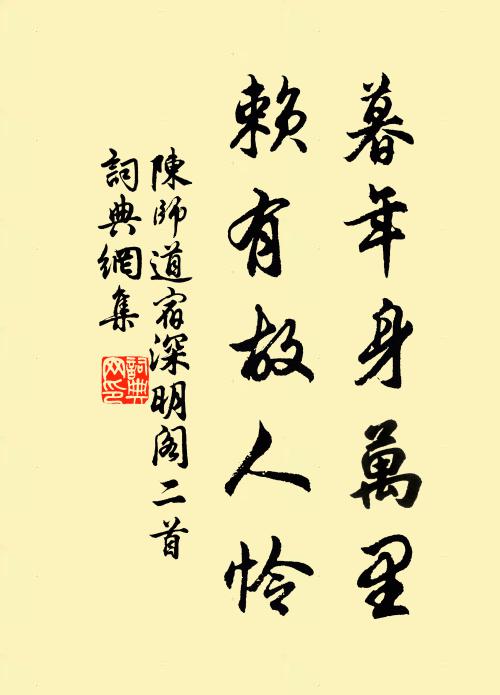 暮年身萬里
賴有故人怜
陳師道宿深明閣二首
詞典網集
詞典
网印